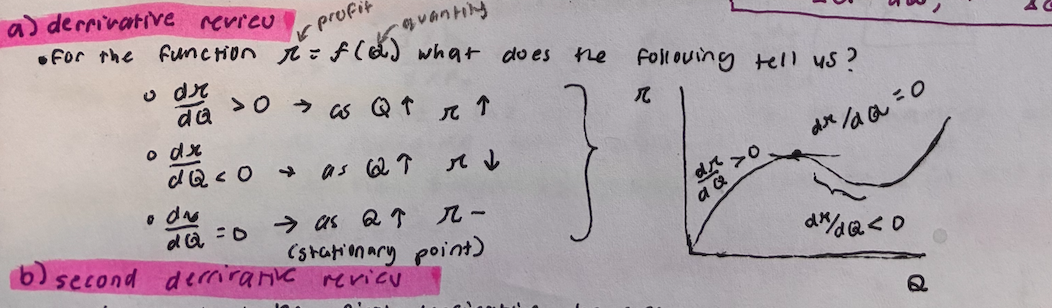 a) derrivative review
profit
quantity
• For the function π = f(Q) what does the following tell us?
dπ/dQ > 0 → as Q ↑ π ↑
dπ/dQ < 0 → as Q ↑ π ↓
dπ/dQ = 0 → as Q ↑ π –
(stationary point)
π
dπ/dQ > 0
dπ/dQ = 0
dπ/dQ < 0
Q
b) second derrivative review